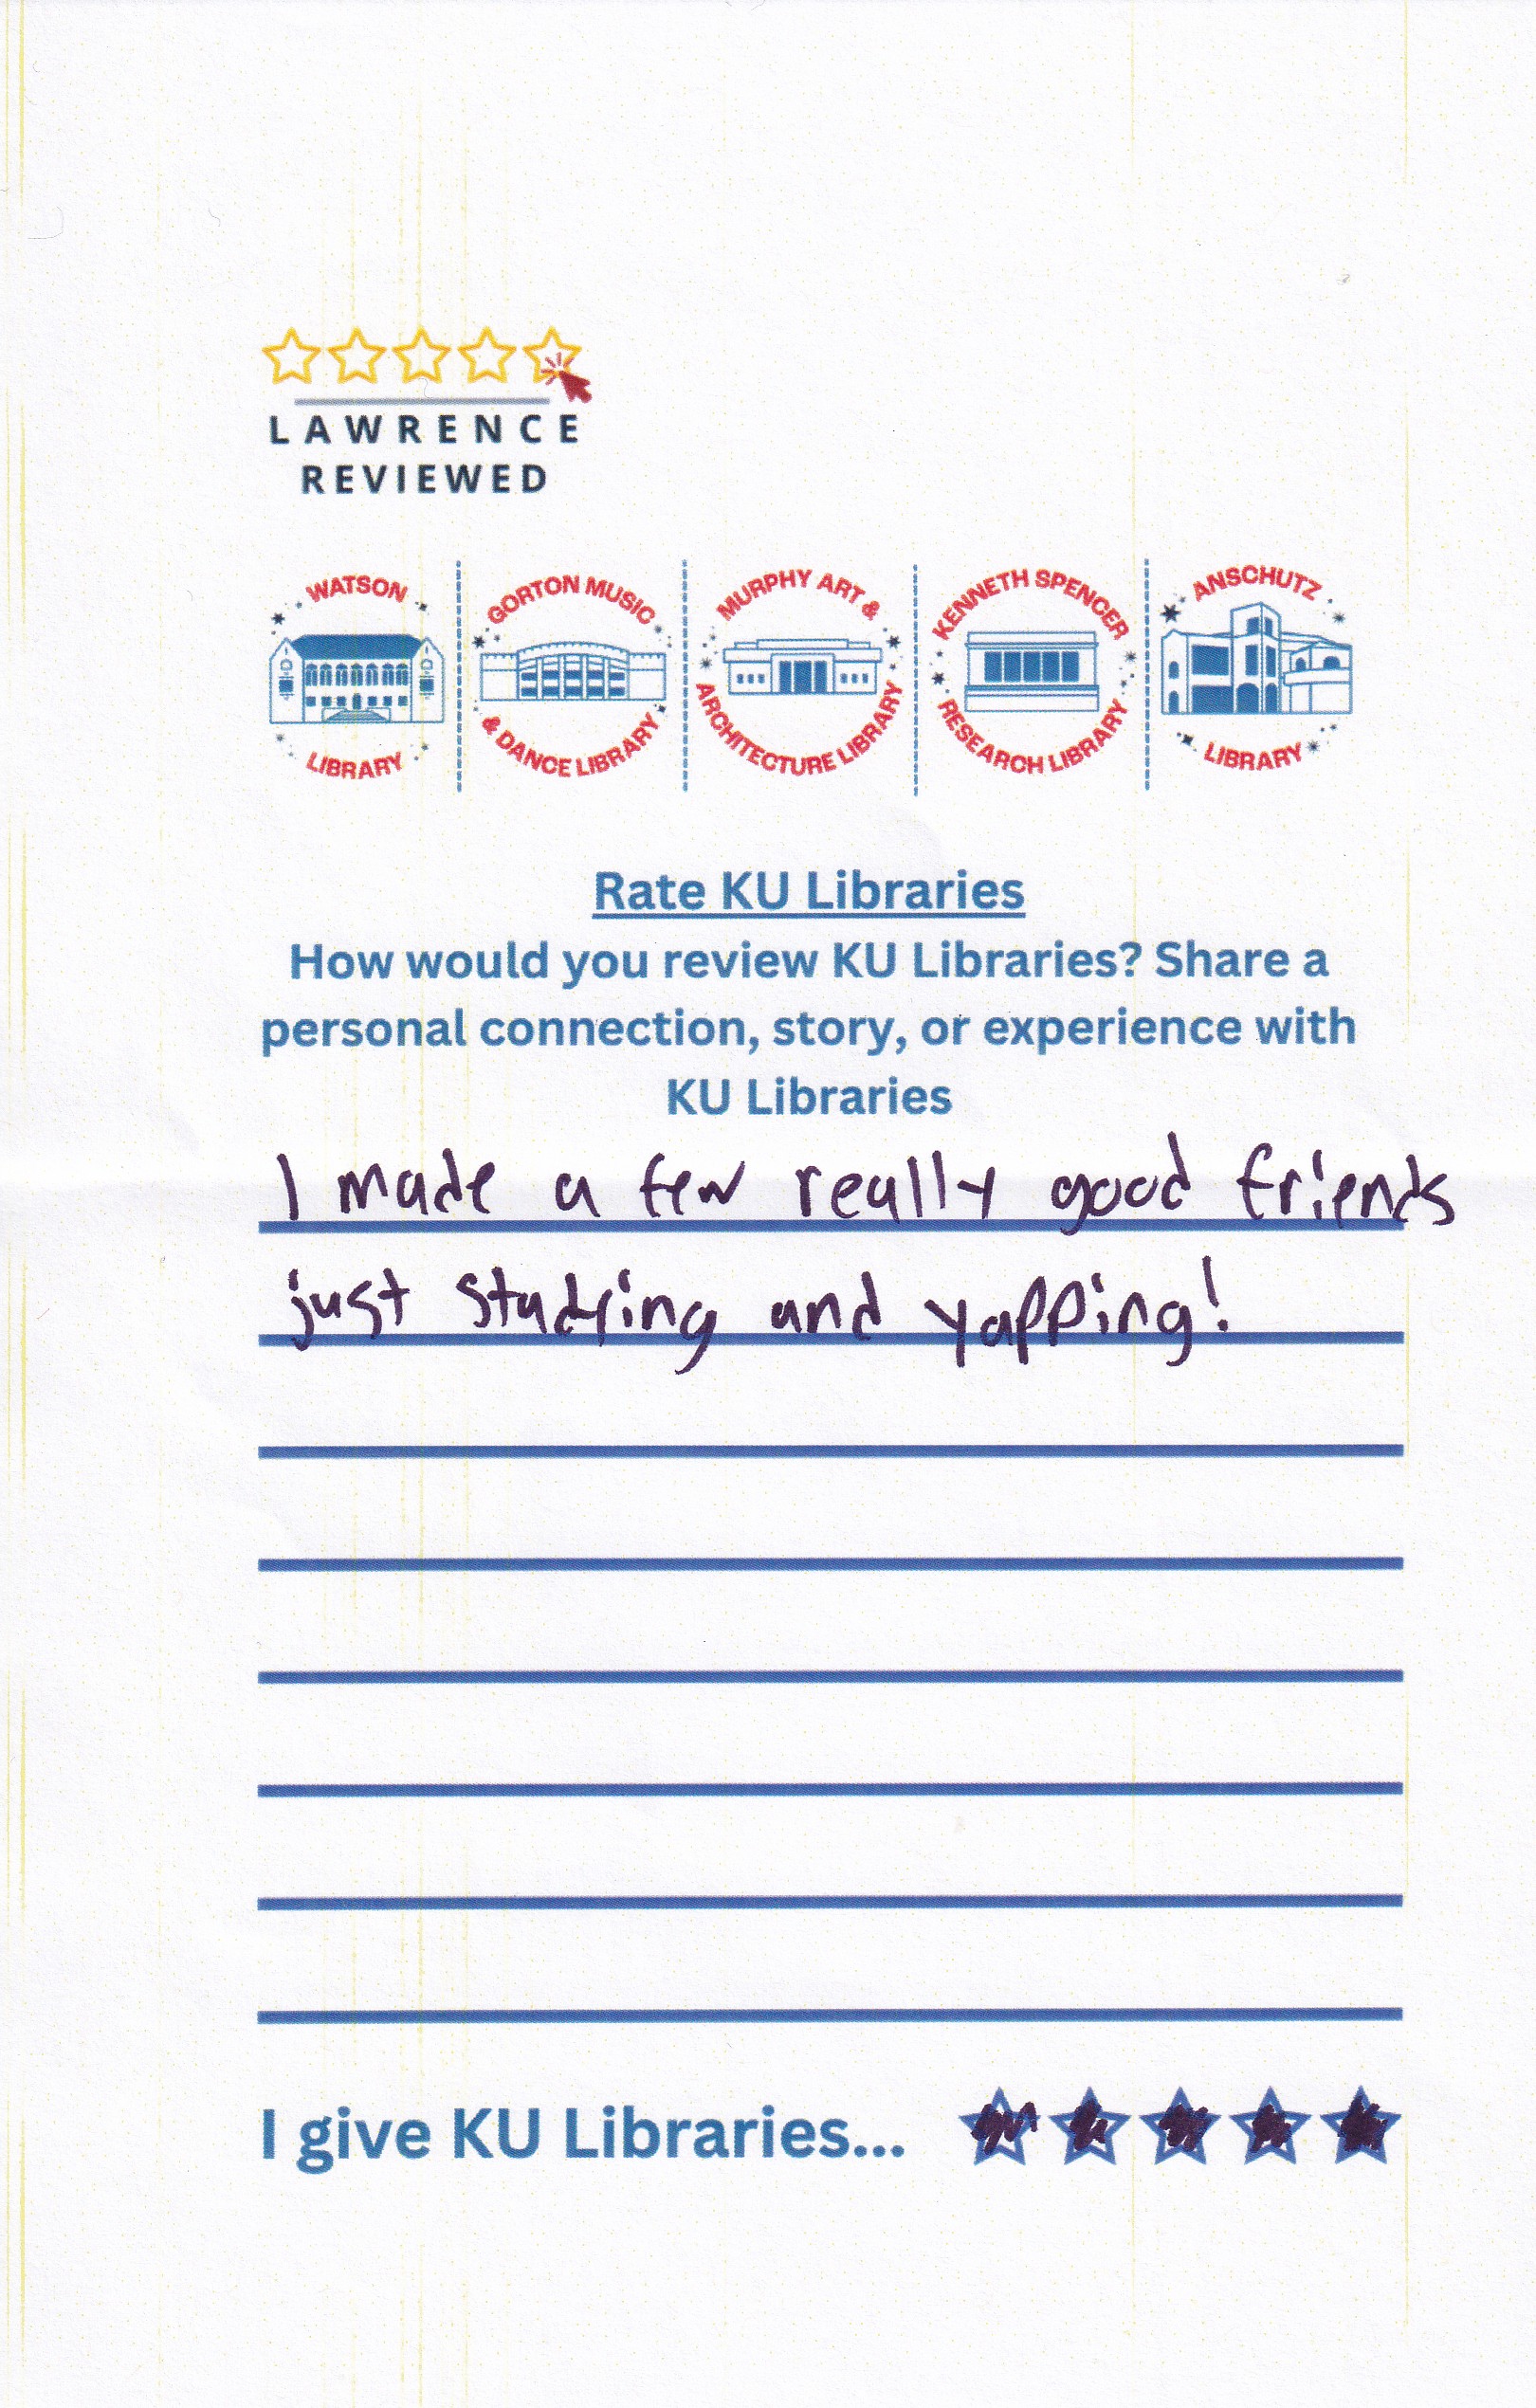 LAWRENCE
REVIEWED
WATSON
LIBRARY
GORTON MUSIC
& DANCE LIBRARY
MURPHY ART &
ARCHITECTURE LIBRARY
KENNETH SPENCER
RESEARCH LIBRARY
ANSCHUTZ
LIBRARY
Rate KU Libraries
How would you review KU Libraries? Share a
personal connection, story, or experience with
KU Libraries
I made a few really good friends
just studying and yapping!
I give KU Libraries...